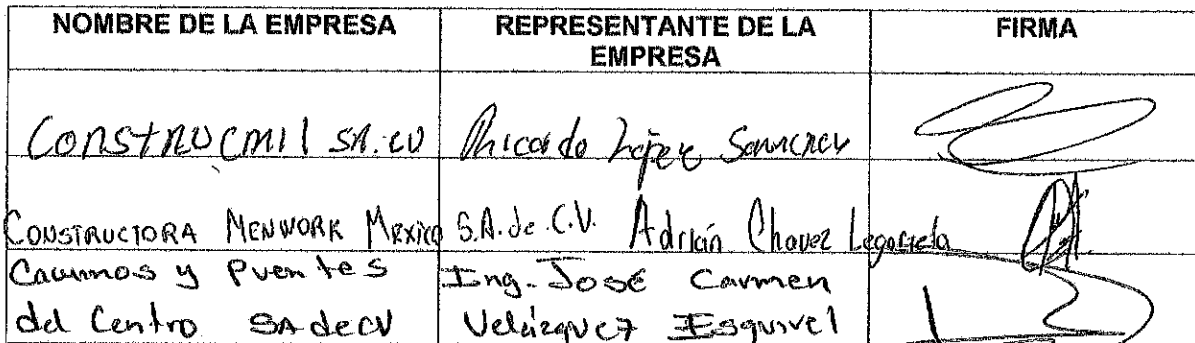 NOMBRE DE LA EMPRESA REPRESENTANTE DE LA EMPRESA FIRMA
Construcmil SA. CV Ricardo López Sanchez
CONSTRUCTORA MENWORK MEXICO S.A. de C.V. Adrián Chavez Legorreta
Caminos y Puentes Ing. José Carmen
del Centro SA de CV Velázquez Esquivel